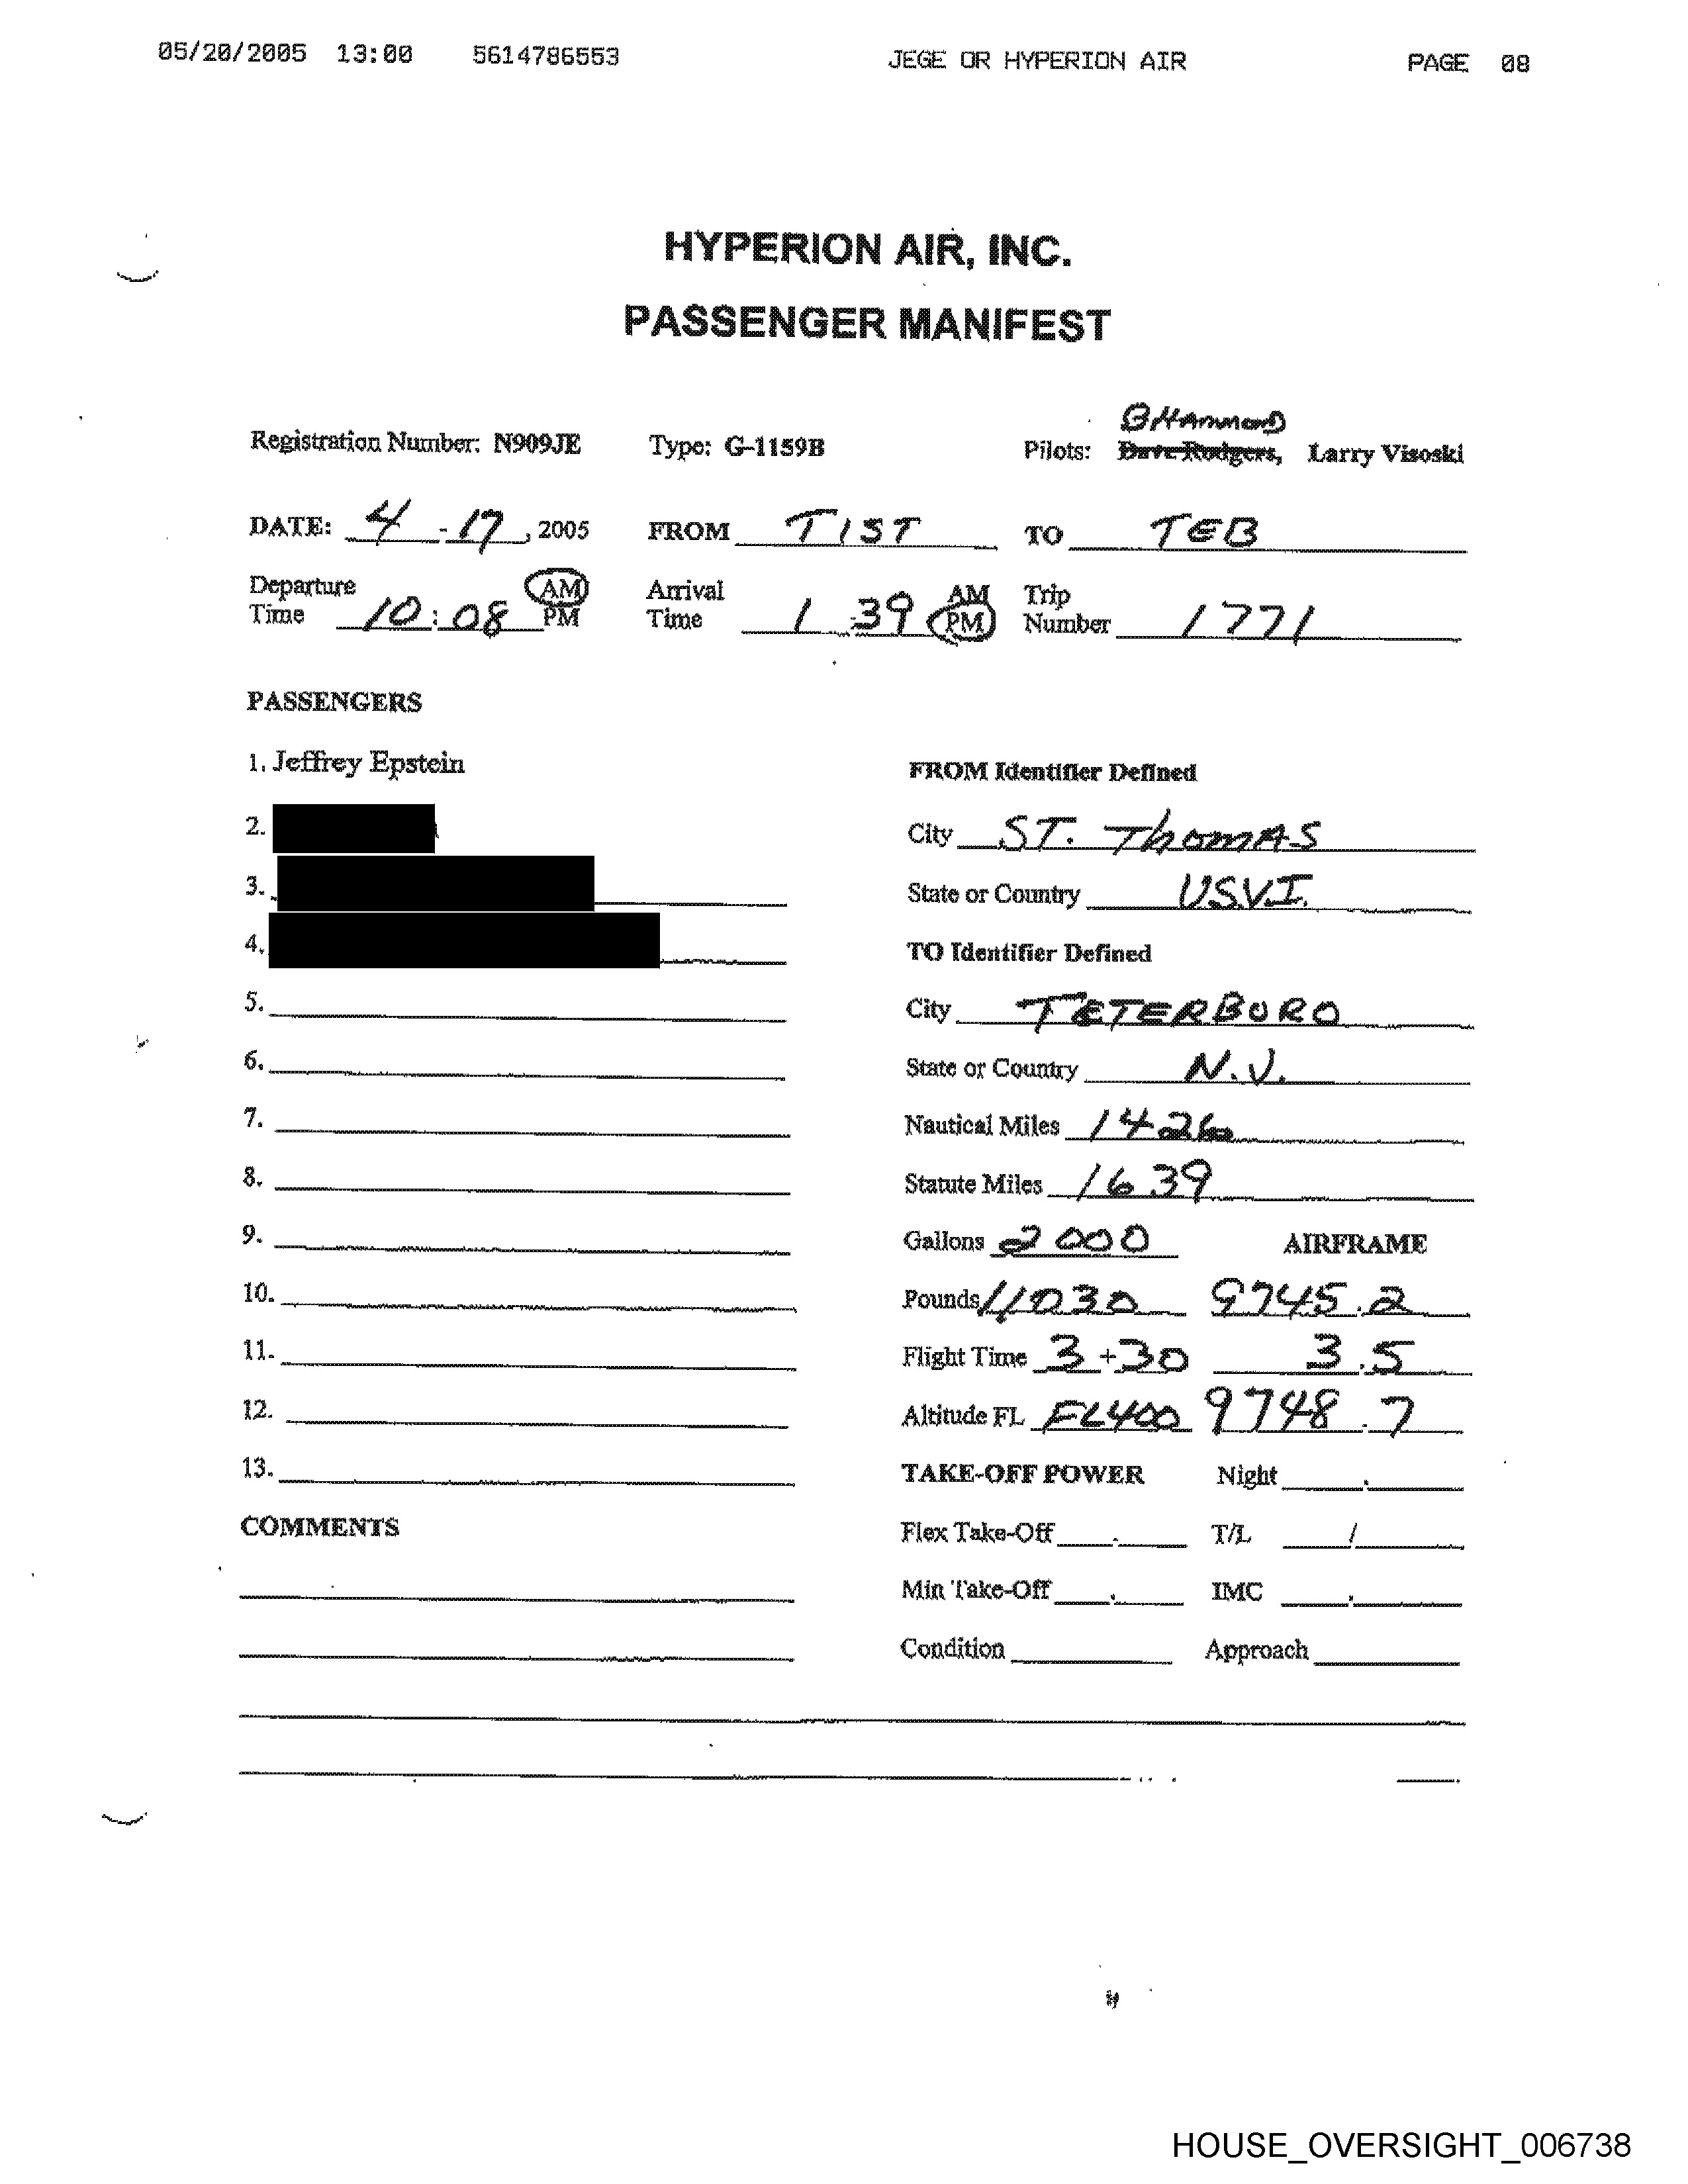 05/20/2005 13:00 5614786553 JEGE OR HYPERION AIR PAGE 08
HYPERION AIR, INC.
PASSENGER MANIFEST
BHAMMOND
Registration Number: N909JE Type: G-1159B Pilots: Dave Rodgers, Larry Visoski
DATE: 4-17, 2005 FROM TIST TO TEB
Departure AM Arrival AM Trip
Time 10:08 PM Time 1:39 PM Number 1771
PASSENGERS
1. Jeffrey Epstein
FROM Identifier Defined
2.
City ST. ThomAS
3.
State or Country USVI.
4.
TO Identifier Defined
5.
City TETERBORO
6.
State or Country N.J.
7.
Nautical Miles 1426
8.
Statute Miles 1639
9.
Gallons 2000 AIRFRAME
10.
Pounds 11030 9745.2
11.
Flight Time 3+30 3.5
12.
Altitude FL FL400 9748.7
13.
TAKE-OFF POWER Night
COMMENTS
Flex Take-Off T/L /
Min Take-Off IMC
Condition Approach
HOUSE_OVERSIGHT_006738